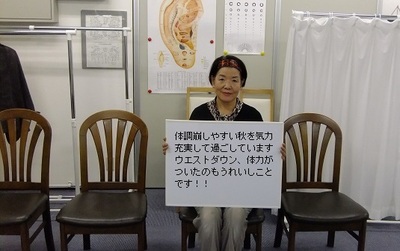 体調崩しやすい秋を気力
充実して過ごしています
ウエストダウン、体力が
ついたのもうれいしこと
です！！